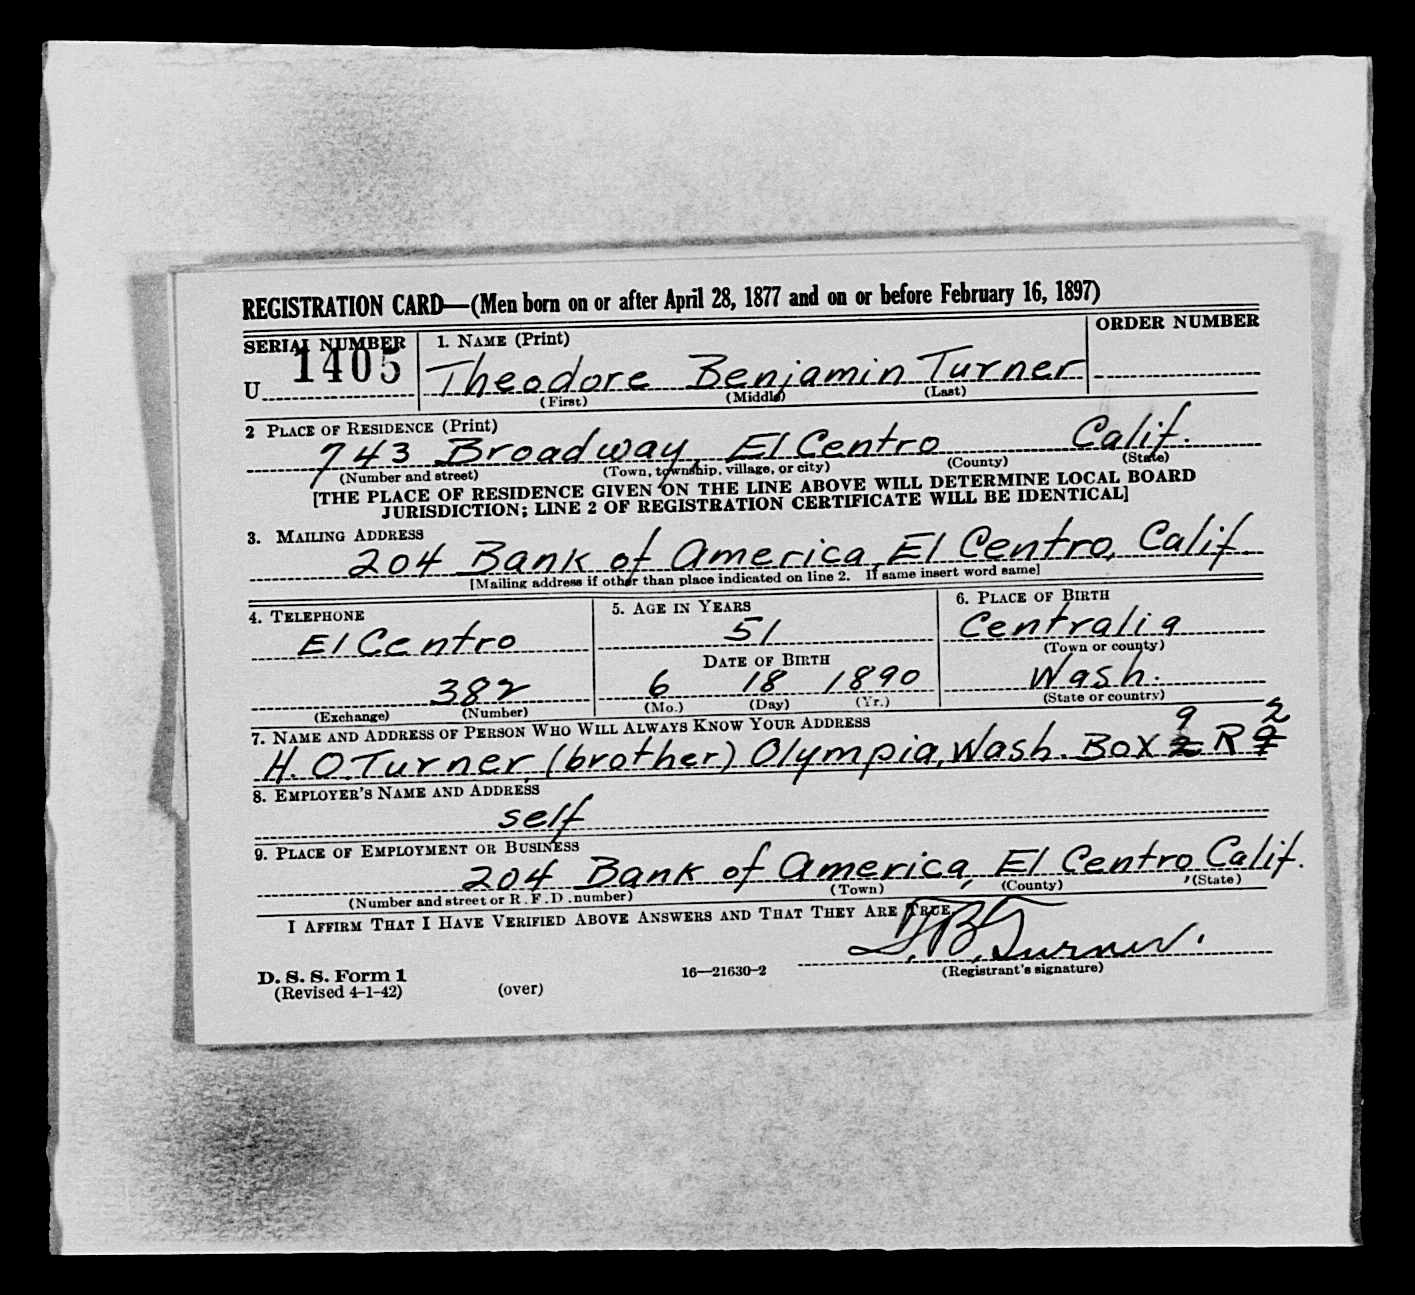 REGISTRATION CARD—(Men born on or after April 28, 1877 and on or before February 16, 1897)
SERIAL NUMBER
1. NAME (Print)
ORDER NUMBER
U 1405
Theodore Benjamin Turner
(First) (Middle) (Last)
2 PLACE OF RESIDENCE (Print)
743 Broadway, El Centro Calif.
(Number and street) (Town, township, village, or city) (County) (State)
[THE PLACE OF RESIDENCE GIVEN ON THE LINE ABOVE WILL DETERMINE LOCAL BOARD
JURISDICTION; LINE 2 OF REGISTRATION CERTIFICATE WILL BE IDENTICAL]
3. MAILING ADDRESS
204 Bank of America, El Centro, Calif.
[Mailing address if other than place indicated on line 2. If same insert word same]
4. TELEPHONE
El Centro
382
(Exchange) (Number)
5. AGE IN YEARS
51
DATE OF BIRTH
6 18 1890
(Mo.) (Day) (Yr.)
6. PLACE OF BIRTH
Centralia
(Town or county)
Wash.
(State or country)
7. NAME AND ADDRESS OF PERSON WHO WILL ALWAYS KNOW YOUR ADDRESS
H. O. Turner (brother) Olympia, Wash. Box 2 9 R 9 2
8. EMPLOYER'S NAME AND ADDRESS
self
9. PLACE OF EMPLOYMENT OR BUSINESS
204 Bank of America, El Centro, Calif.
(Number and street or R. F. D. number) (Town) (County) (State)
I AFFIRM THAT I HAVE VERIFIED ABOVE ANSWERS AND THAT THEY ARE TRUE.
T. B. Turner.
D. S. S. Form 1
(Revised 4-1-42) (over) 16—21630-2 (Registrant's signature)